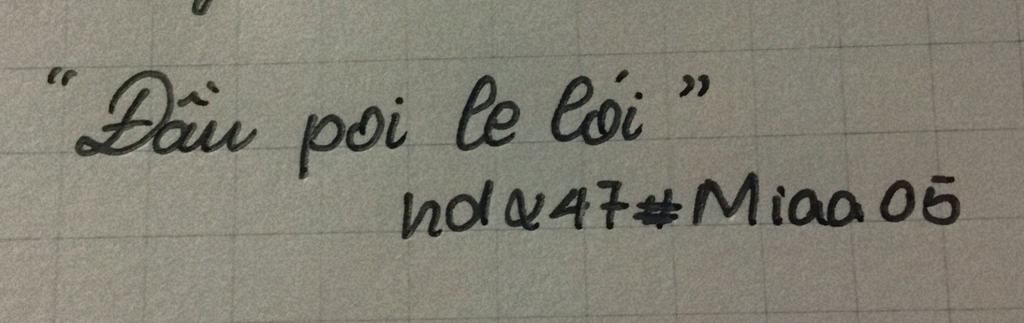 "Đầu poi le lói"
hdα47#Miaa05